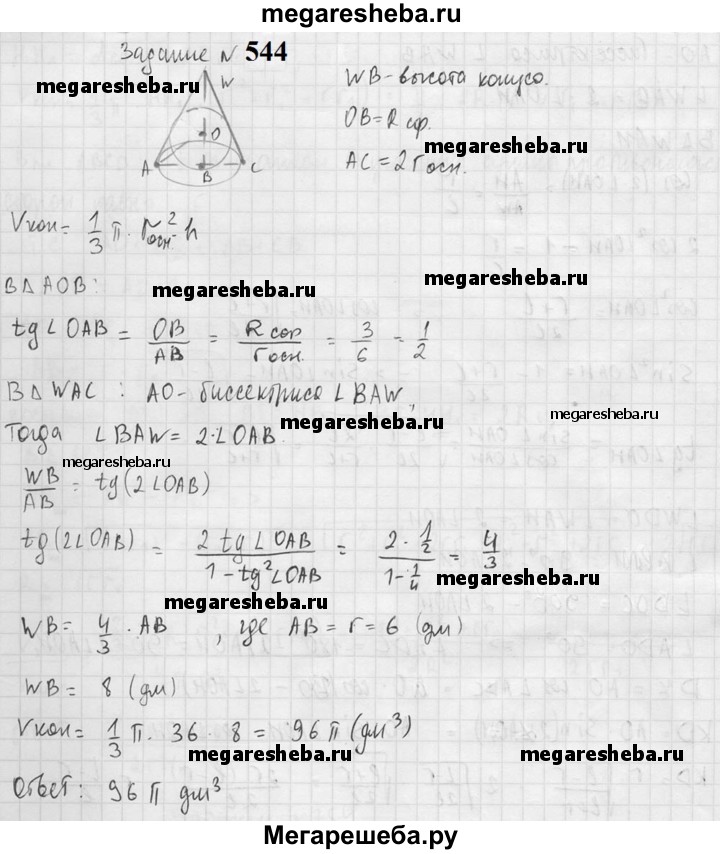 megaresheba.ru
Задание N 544
megaresheba.ru
W
O
A
B
C
WB - высота конуса.
OB = R сф.
megaresheba.ru
AC = 2 r осн.
Vкон = 1/3 π · r²осн · h
В Δ AOB:
megaresheba.ru
megaresheba.ru
tg∠OAB = OB/AB = R сфр/r осн. = 3/6 = 1/2
В Δ WAC : AO - биссектриса ∠BAW,
megaresheba.ru
megaresheba.ru
Тогда ∠BAW = 2·∠OAB.
megaresheba.ru
WB/AB = tg(2∠OAB)
tg(2∠OAB) = 2 tg∠OAB/1 - tg²∠OAB = 2 · 1/2/1 - 1/4 = 4/3
megaresheba.ru
megaresheba.ru
WB = 4/3 · AB , где AB = r = 6 (дм)
WB = 8 (дм)
megaresheba.ru
Vкон = 1/3 π · 36 · 8 = 96 π (дм³)
megaresheba.ru
megaresheba.ru
Ответ: 96 π дм³
Мегарешеба.ру